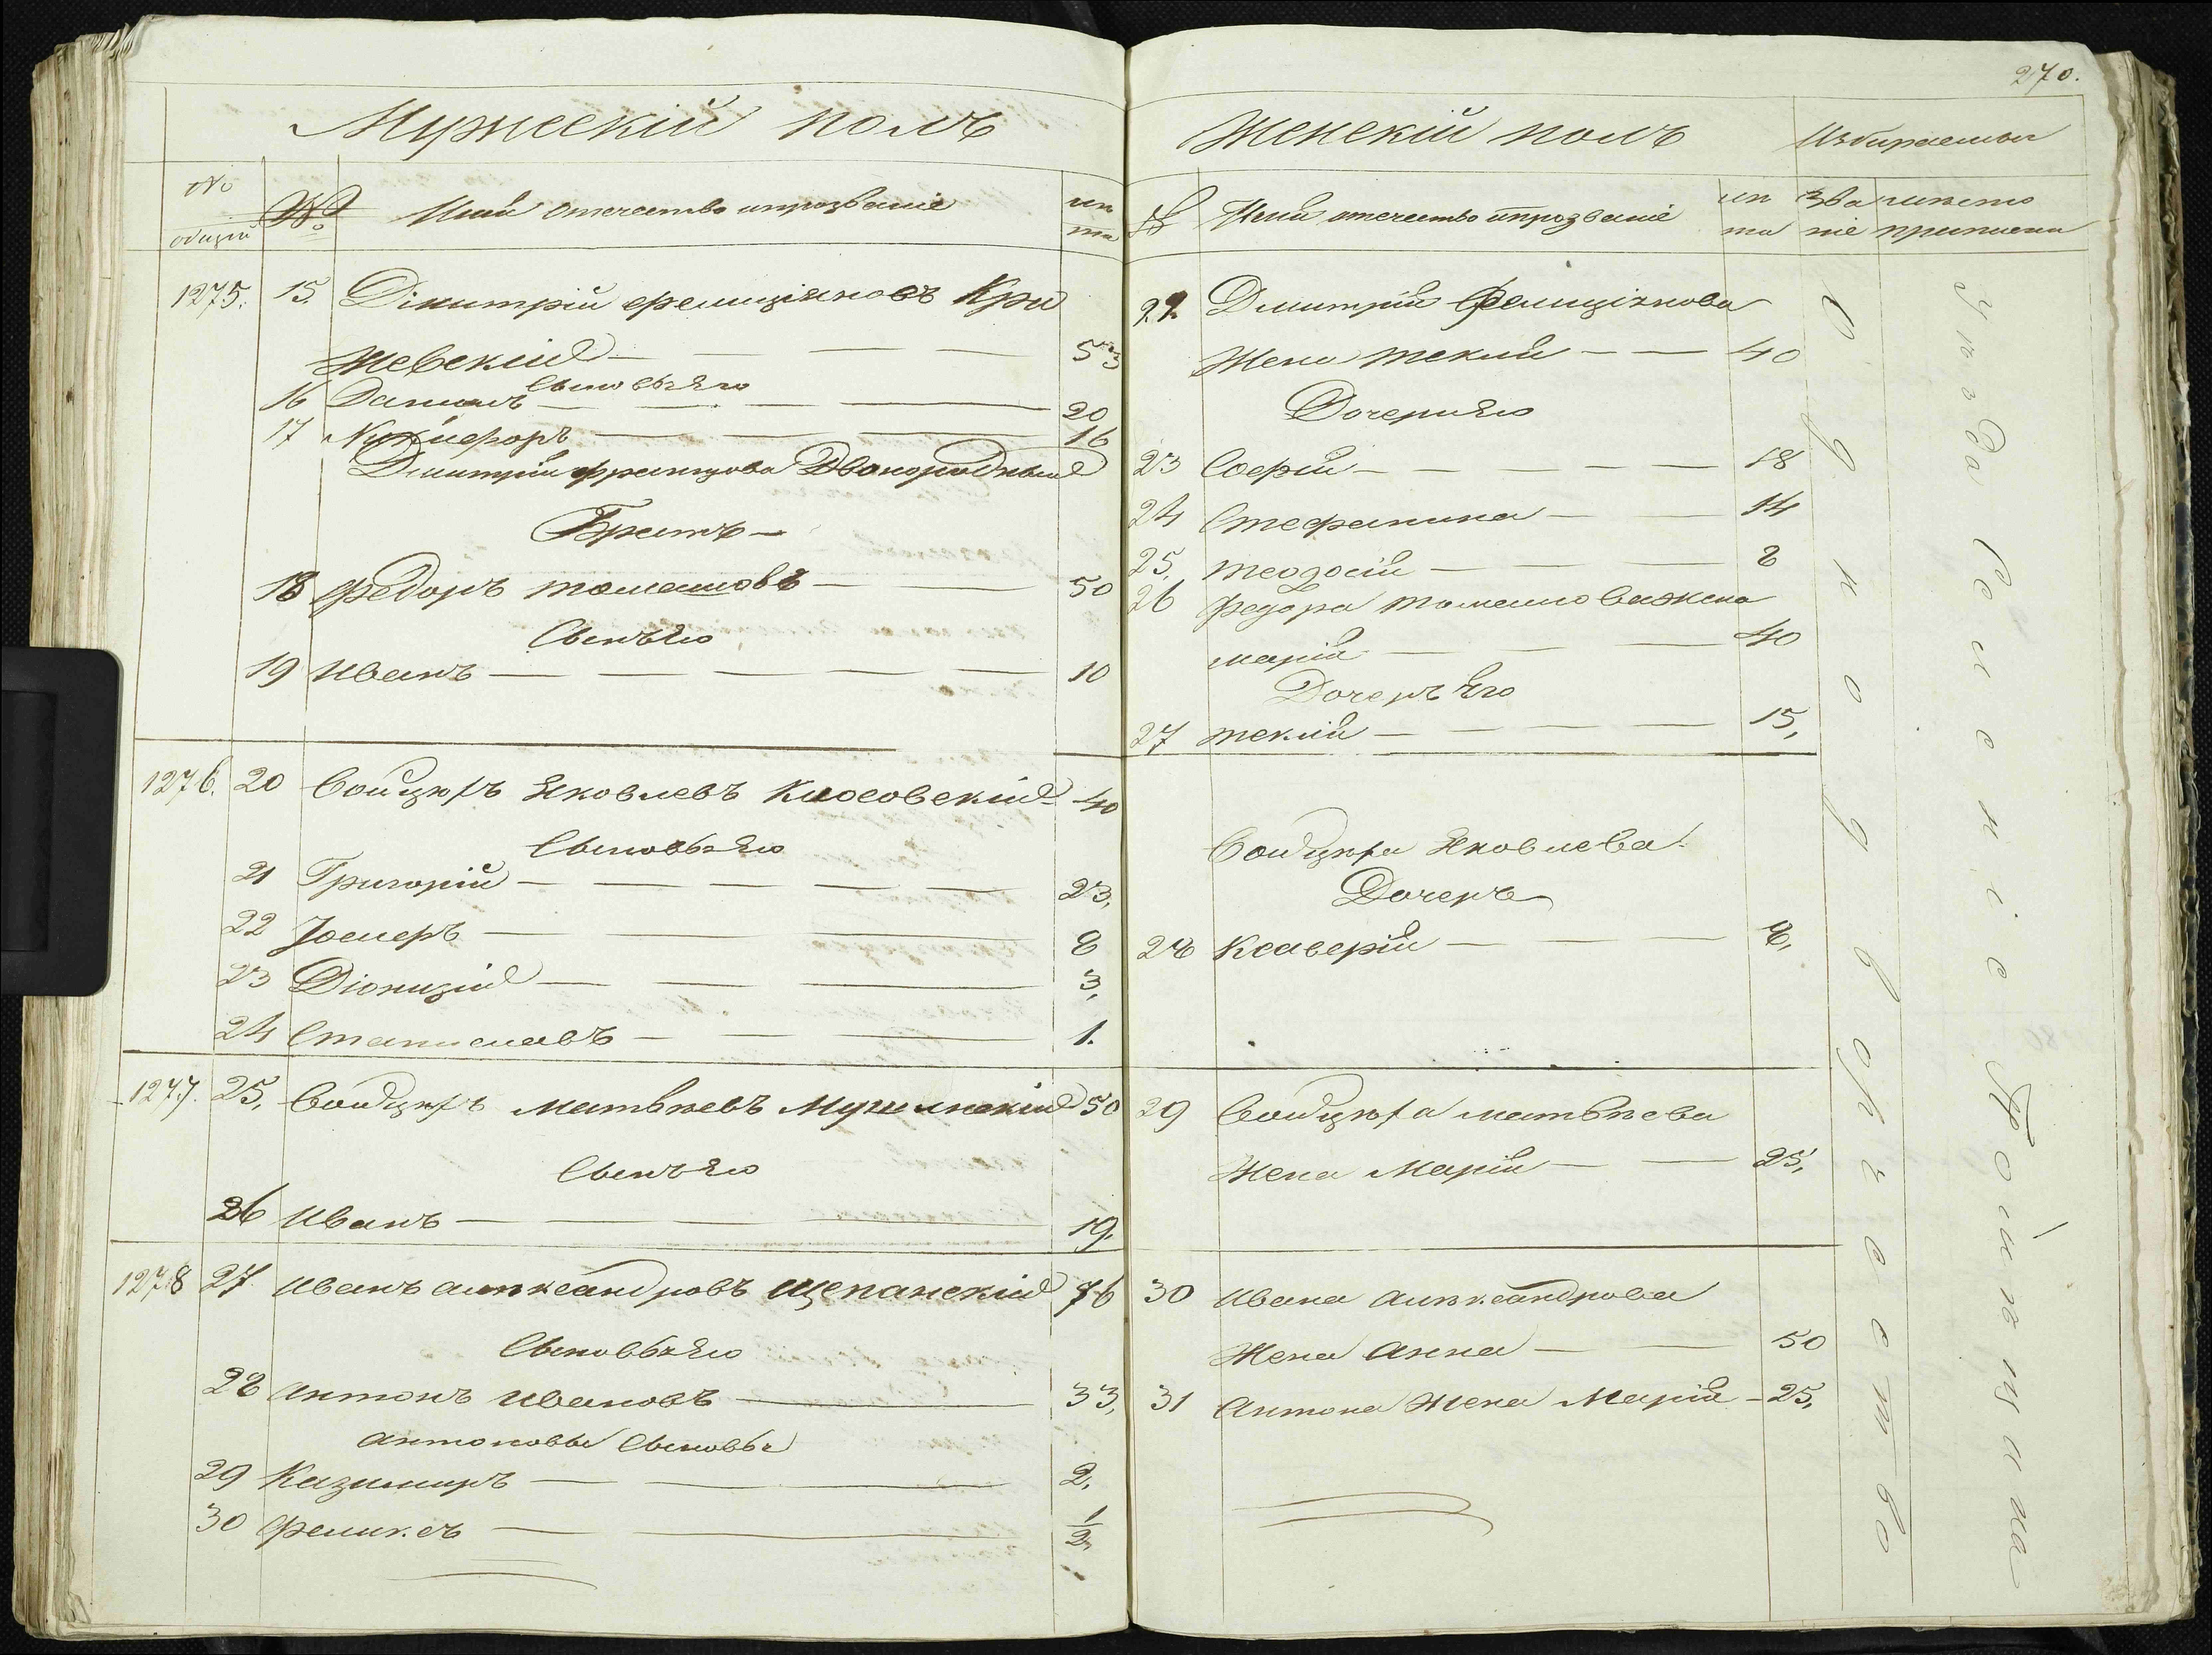 270.
Мужескій полъ
№ общій
№
Имя отечество и прозваніе
лѣта
1275. 15. Дімитрій Фелиціяновъ Кри
жевскій — 53
Сыновья Его
16 Данилъ — 20
17 Никифоръ — 16
Дмитрія Францова Двоюродный
Братъ —
18 Федоръ Томашовъ — 50
Сынъ Его
19 Иванъ — 10
1276. 20 Войцѣхъ Яковлевъ Клосовскій — 40
Сыновья Его
21 Григорій — 23,
22 Іосиеръ — 8
23 Діонизій — 3,
24 Станиславъ — 1.
1277. 25. Войцѣхъ Матвѣевъ 50
Сынъ Его
26 Иванъ — 19.
1278 27 Иванъ Алѣксандровъ Щепанскій 76
Сыновья Его
28 Антонъ Ивановъ — 33,
Антоновы Сыновья
29 Казимиръ — 2,
30 Феликсъ — 1/2,
Женскій полъ
№
Имя отечество и прозваніе
лѣта
званіе
приписки
22. Дмитрія Фелиціянова
Жена Теклія — 40
Дочери Его
23 Софія — 18
24 Стефанина — 14
25. Теодосія — 8
26 Федора Томашова жена
Марія — 40
Дочерь Его
27 Теклія — 15,
Войцѣха Яковлева
Дочерь
28 Ксаверія — 8,
29 Войцѣха Матвѣева
Жена Марія — 25,
30 Ивана Алѣксандрова
Жена Анна — 50
31 Антона Жена Марія — 25,
Однодворчество
Селеніе Войнѣщина